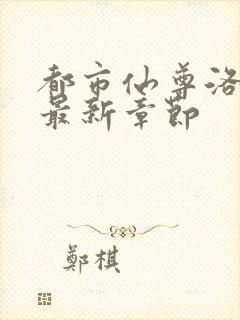 都市仙尊洛
最新章節
鄭棋